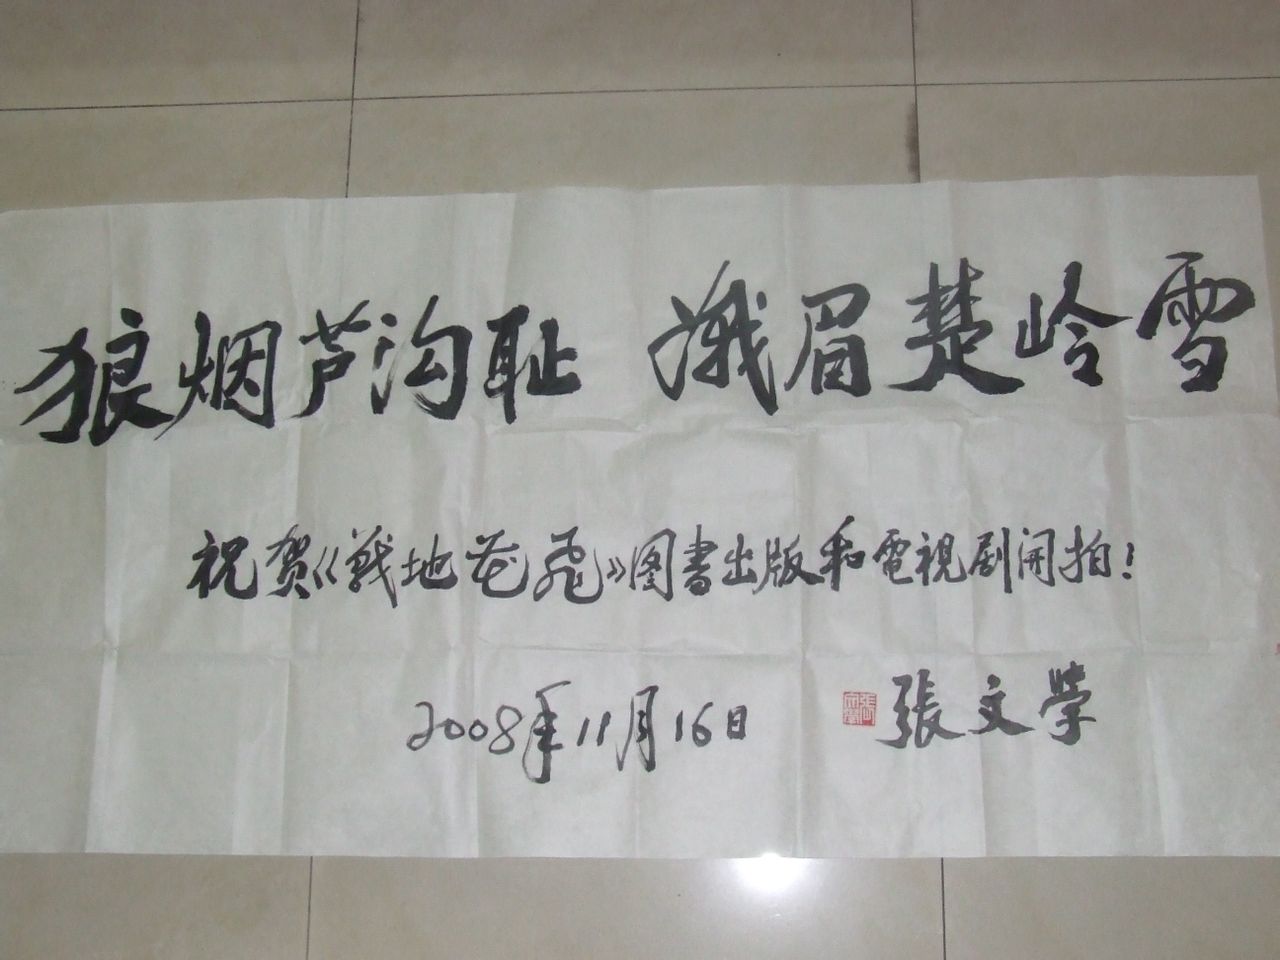 狼烟芦沟耻 娥眉楚岭雪
祝贺《战地花飛》图書出版和電視剧開拍！
2008年11月16日 張文学